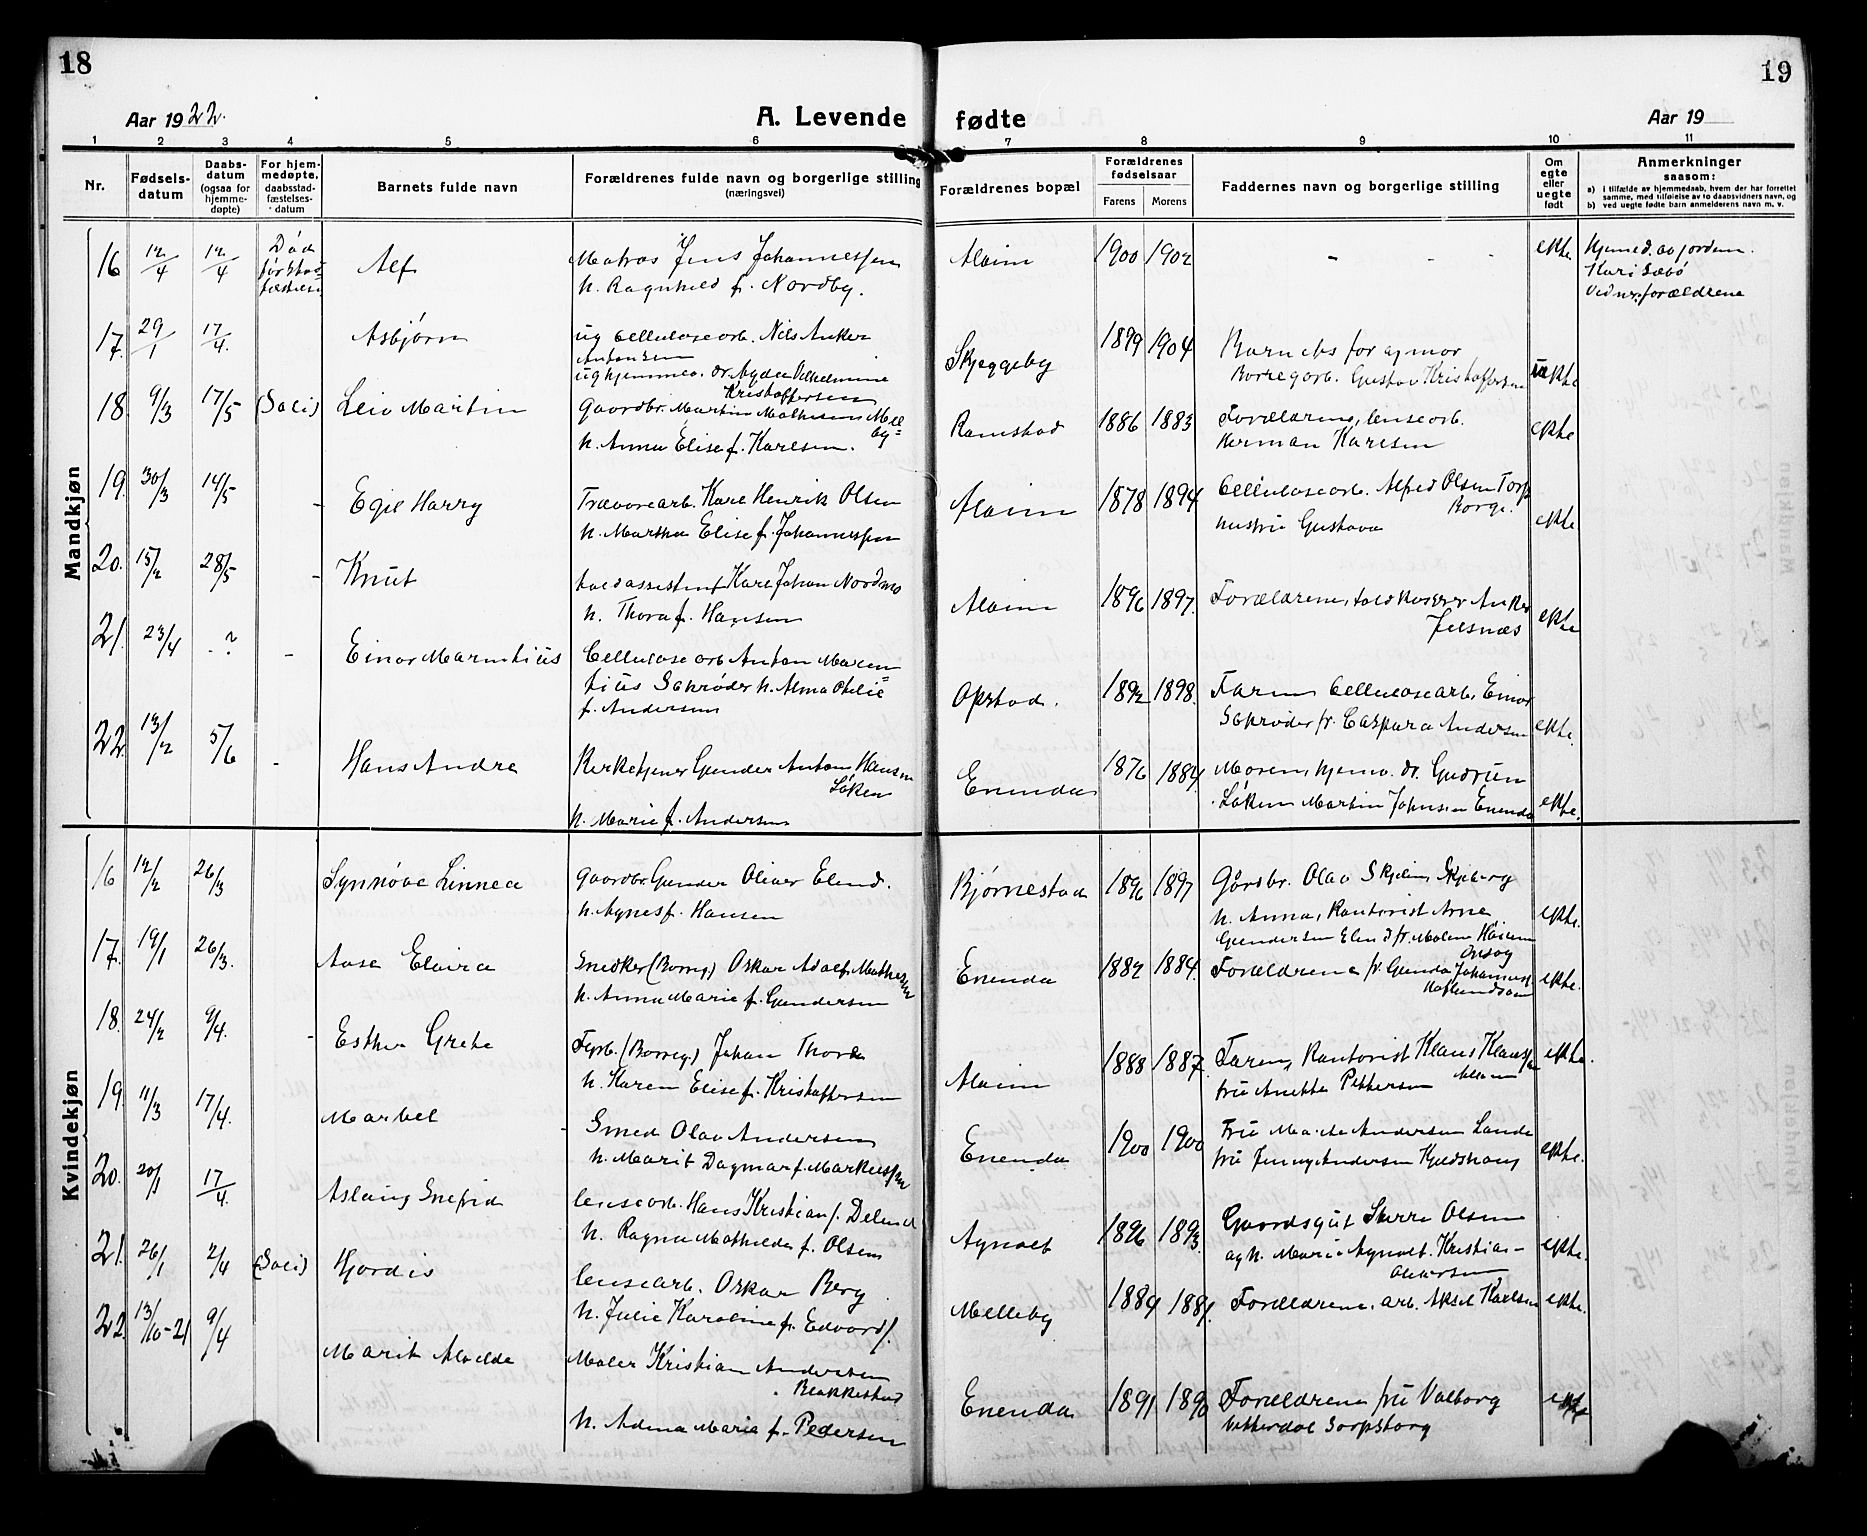 18
19
Aar 1922.
A. Levende fødte
Aar 19
1 2 3 4 5 6 7 8 9 10 11
Nr.
Fødsels-
datum
Daabs-
datum
(ogsaa for
hjemme-
døpte)
For hjem-
medøpte,
daabsstad-
fæstelses-
datum
Barnets fulde navn
Forældrenes fulde navn og borgerlige stilling
(næringsvei)
Forældrenes bopæl
Forældrenes
fødselsaar
Farens Morens
Faddernes navn og borgerlige stilling
Om
egte
eller
uegte
født
Anmerkninger
saasom:
a) i tilfælde av hjemmedaab, hvem der har forrettet
samme, med tilføielse av to daabsvidners navn, og
b) ved uegte fødte barn anmelderens navn m. v.
Mandkjøn
16 12/4 12/4 Død
før stad
fæstelsen
Alf
Matros Jens Johannessen
h. Ragnhild f. Nordby.
Alvim
1900 1902
ekte
Hjemmed. av jordm.
Kari Sæbö
Vidner, forældrene
17. 29/1 17/4.
Asbjørn
ug celluloseorb. Nils Anker
Antonsen
ug hjemmev. dr. Agda Vilhelmine
Kristoffersen
Skjeggeby
1899 1904
Barnets far og mor
Borregarb. Gustav Kristoffersen
uekte
18. 9/3 17/5 (Soli)
Leiv Martin
Gaardbr. Martin Mathisen Mell
by=
h. Anna Elise f. Karlsen.
Ramstad
1886 1883
Forældrene, lensearb.
Herman Karlsen
ekte
19. 30/3 14/5 -
Egil Harry
Trævarearb. Karl Henrik Olsen
h. Martha Elise f. Johannessen
Alvim
1878 1894
Celluloseorb. Alfred Olsen Torp
Borge.
hustru Gustava
ekte
20. 15/2 28/5 -
Knut
toldassistent Karl Johan Nordmo
h. Thora f. Hansen
Alvim
1896 1897.
Forældrene, toldkasserer Anker
Jelsnæs
ekte
21. 23/4 - ? -
Einar Marentius
Cellulose orb Anton Maren=
tius Schrøder h. Alma Otelie
f. Andersen
Opstad.
1892 1898.
Faren Cellulosearb. Einar
Schrøder fr. Caspara Andersen
ekte.
22. 13/2 5/6 -
Hans Andre
Kirketjener Gunder Anton Hansen
Löken
h. Marie f. Andersen
Enenda
1876 1884
Moren, hjemv. dr. Gudrun
Löken Martin Johnsen Enenda
ekte.
Kvindekjøn
16 12/2 26/3
Synnöve Linnea
Gaardbr. Gunder Oliver Elind.
h. Agnes f. Hansen
Bjørnestad
1896 1897
Gårdbr. Olav Skjelin, Skjeberg
h. Anna, Kontorist Arne
Gundersen Elind fr. Malene Hansen
Onsøy
ekte.
17. 19/1 26/3.
Aase Elvira
Snedker (Borreg.) Oskar Adolf Mathesen
h. Anna Marie f. Gundersen
Enenda
1882 1884.
Forældrene fr. Gunda Johannes.
Haflundsøen
ekte.
18. 24/2 9/4. -
Esther Grete
Fyrb. (Borreg.) Johan Thorda
h. Karen Elise f. Kristoffersen
Alvim
1888 1887.
Faren, Kontorist Klaus Klaussen
Alvim
fru Anette Pettersen
ekte.
19. 11/3 17/4. -
Marbel
Smed Olav Andersen
h. Marit Dagmar f. Markussen
Enenda
1900 1900
Fru Marta Andersen Lande
fru Jenny Andersen Kjeldshaug
ekte.
20. 20/1 17/4.
Aslaug Snefrid
lensearb. Hans Kristian J. Delind
h. Ragna Mathilde f. Olsen
Agnalt
1896 1893.
Gaardsgut Sverre Olsen
og h. Marie Agnalt. Kristian-
Oliversen
ekte.
21. 26/1 2/4 (Soli)
Hjordis
lensearb. Oskar Berg
h. Julie Karoline f. Edvards.
Melleby
1889 1881.
Forældrene, arb. Aksel Karlsen
ekte.
22. 13/10-21 9/4
Marit Alvilde
Maler Kristian Andersen
Blakkestad
h. Adena Marie f. Pedersen
Enenda
1891 1890
Forældrene fru Valborg
Vetterdal Sarpsborg
ekte